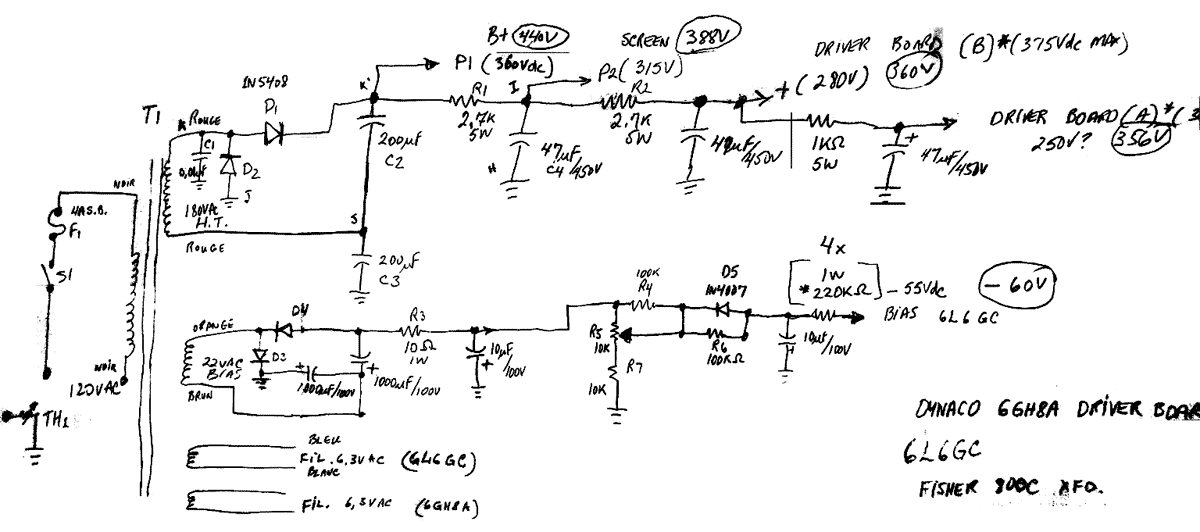 B+ 440V
SCREEN 388V
DRIVER BOARD (B)*(375Vdc MAX)
P1 (360Vdc)
P2 (315V)
+ (280V) 360V
1N5408
D1
K
I
R1
2,7K
5W
R2
2,7K
5W
DRIVER BOARD (A)*(3
250V? 356V
T1
* ROUGE
C1
D2
J
200µF
C2
47µF
C4/450V
/450V
1KΩ
5W
47µF/450V
NOIR
4A S.B.
F1
180VAC
H.T.
ROUGE
S1
200µF
C3
4x
1W
*220KΩ
-55Vdc
-60V
BIAS 6L6GC
100K
R4
D5
1N4007
ORANGE
D4
R3
10Ω
1W
10µF
/100V
R5
10K
R6
100KΩ
10µF
/100V
D3
22VAC
BIAS
1000µF/100V
1000µF/100V
R7
10K
BRUN
NOIR
120VAC
TH1
BLEU
FIL. 6,3VAC (6L6GC)
BLANC
FIL. 6,3VAC (6GH8A)
DYNACO 6GH8A DRIVER BOAR
6L6GC
FISHER 800C XFO.